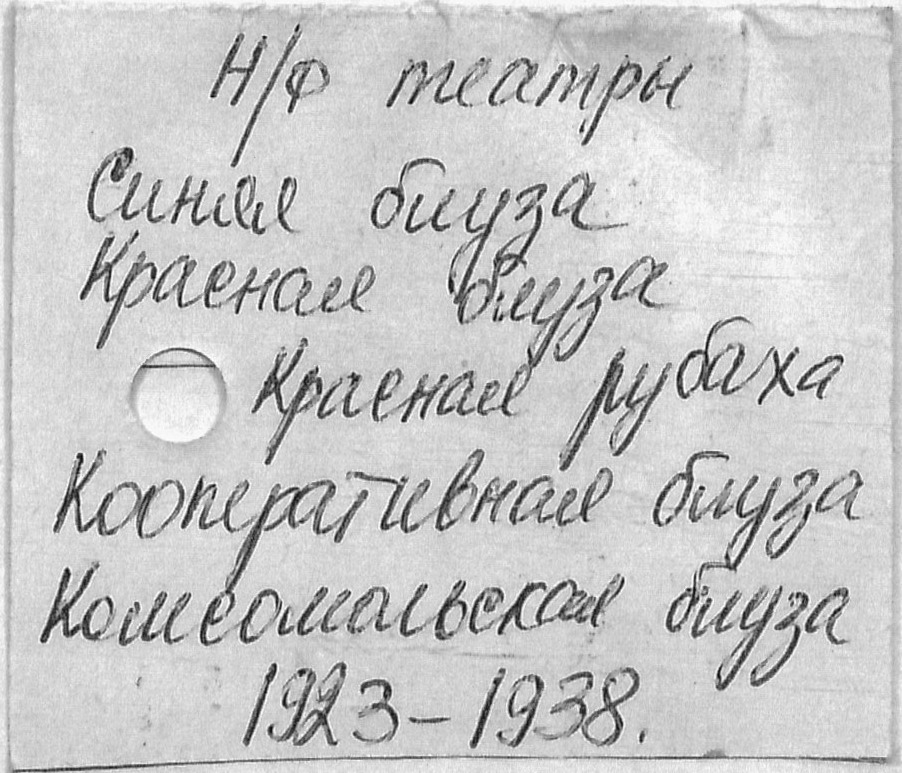 Н/Ф театры
Синяя блуза
Красная блуза
Красная рубаха
Кооперативная блуза
Комсомольская блуза
1923-1938.